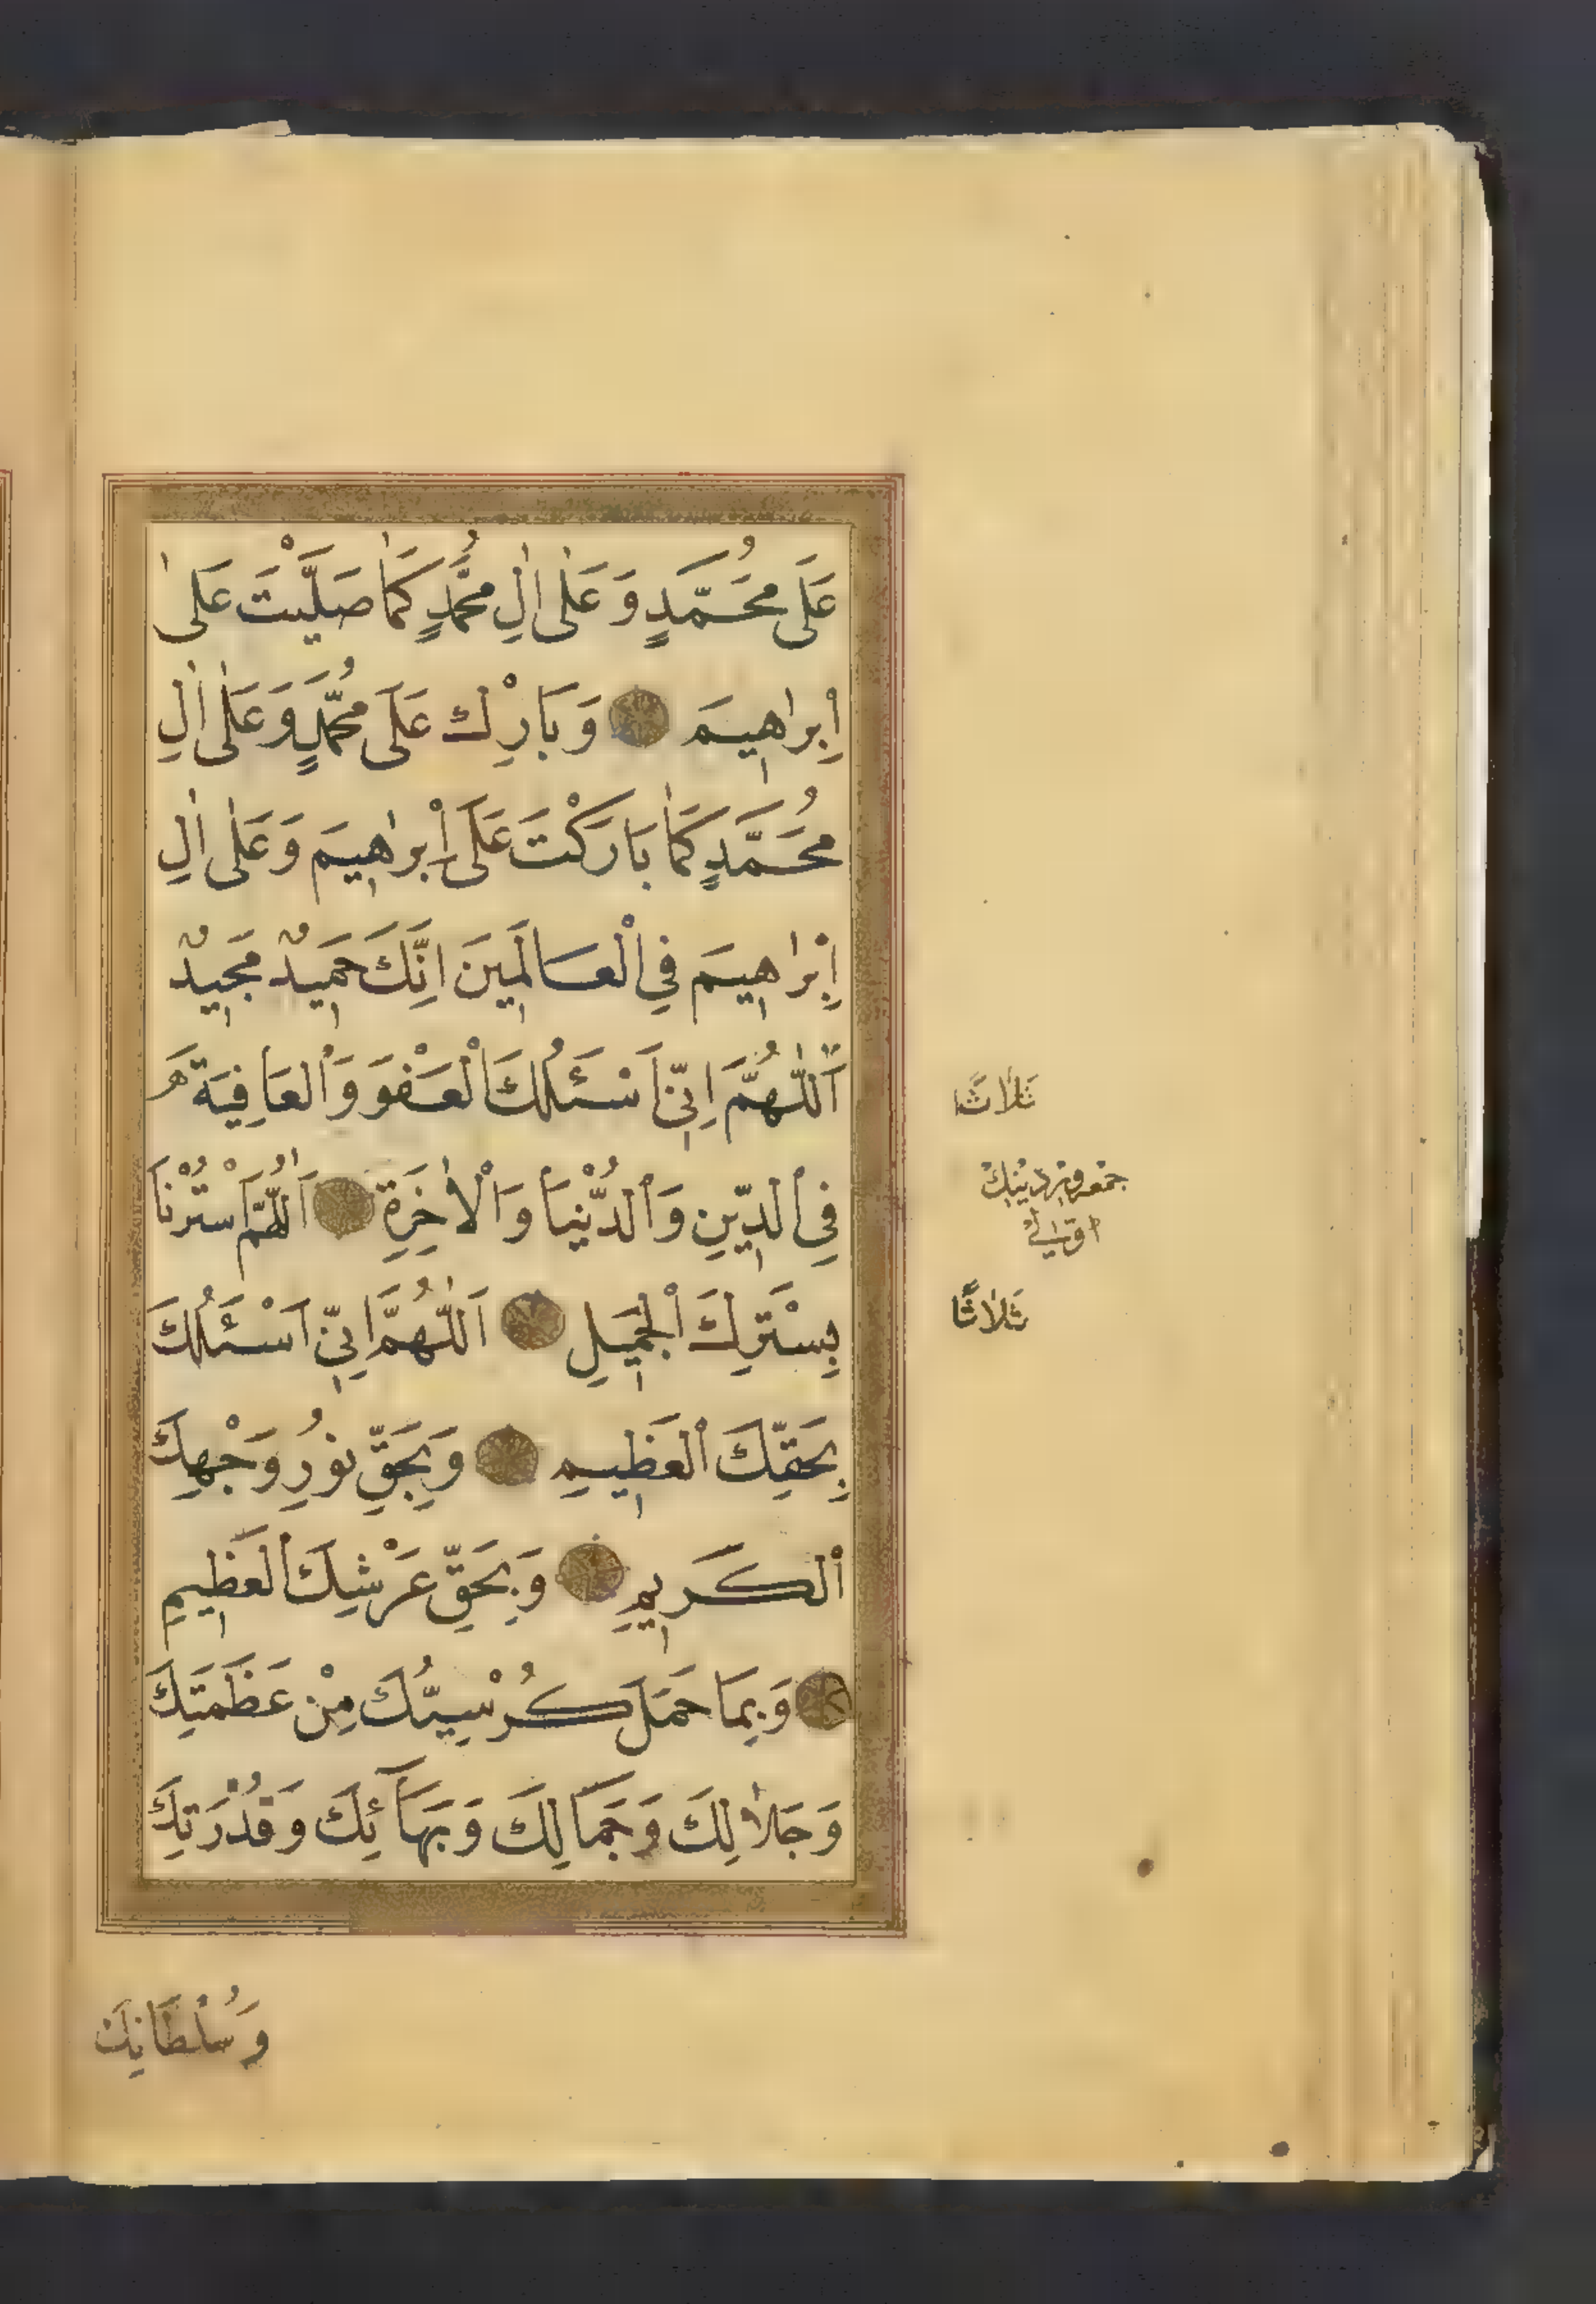 عَلَى مُحَمَّدٍ وَعَلٰى اٰلِ مُحَمَّدٍ كَمَا صَلَّيْتَ عَلٰى
اِبْرٰاهِيمَ وَبَارِكْ عَلَى مُحَمَّدٍ وَعَلٰى اٰلِ
مُحَمَّدٍ كَمَا بَارَكْتَ عَلَى اِبْرٰاهِيمَ وَعَلٰى اٰلِ
اِبْرٰاهِيمَ فِي الْعَالَمِينَ اِنَّكَ حَمِيدٌ مَجِيدٌ
اَللّٰهُمَّ اِنِّي اَسْئَلُكَ الْعَفْوَ وَالْعَافِيَةَ
ثَلَاثًا
فِي الدِّينِ وَالدُّنْيَا وَالْاٰخِرَةِ اَللّٰهُمَّ اسْتُرْنَا
بِسِتْرِكَ الْجَمِيلِ اَللّٰهُمَّ اِنِّي اَسْئَلُكَ
ثَلَاثًا
بِحَقِّكَ الْعَظِيمِ وَبِحَقِّ نُورِ وَجْهِكَ
الْكَرِيمِ وَبِحَقِّ عَرْشِكَ الْعَظِيمِ
وَبِمَا حَمَلَ كُرْسِيُّكَ مِنْ عَظَمَتِكَ
وَجَلَالِكَ وَجَمَالِكَ وَبَهَآئِكَ وَقُدْرَتِكَ
وَسُلْطَانِكَ